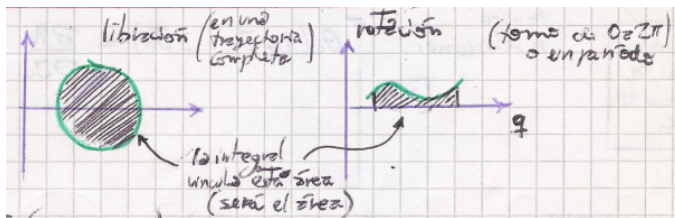 libración
(en una
trayectoria
completa)
rotación
(tomo de 0 a 2π)
o un período
q
la integral
vincula esta área
(será el área)